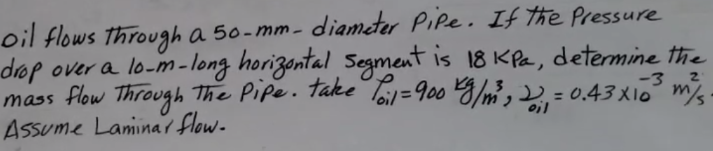 oil flows through a 50-mm-diameter Pipe. If the Pressure
drop over a 10-m-long horizontal segment is 18 KPa, determine the
mass flow through the pipe. take ρoil=900 kg/m³, νoil=0.43×10⁻³ m²/s.
Assume Laminar flow.